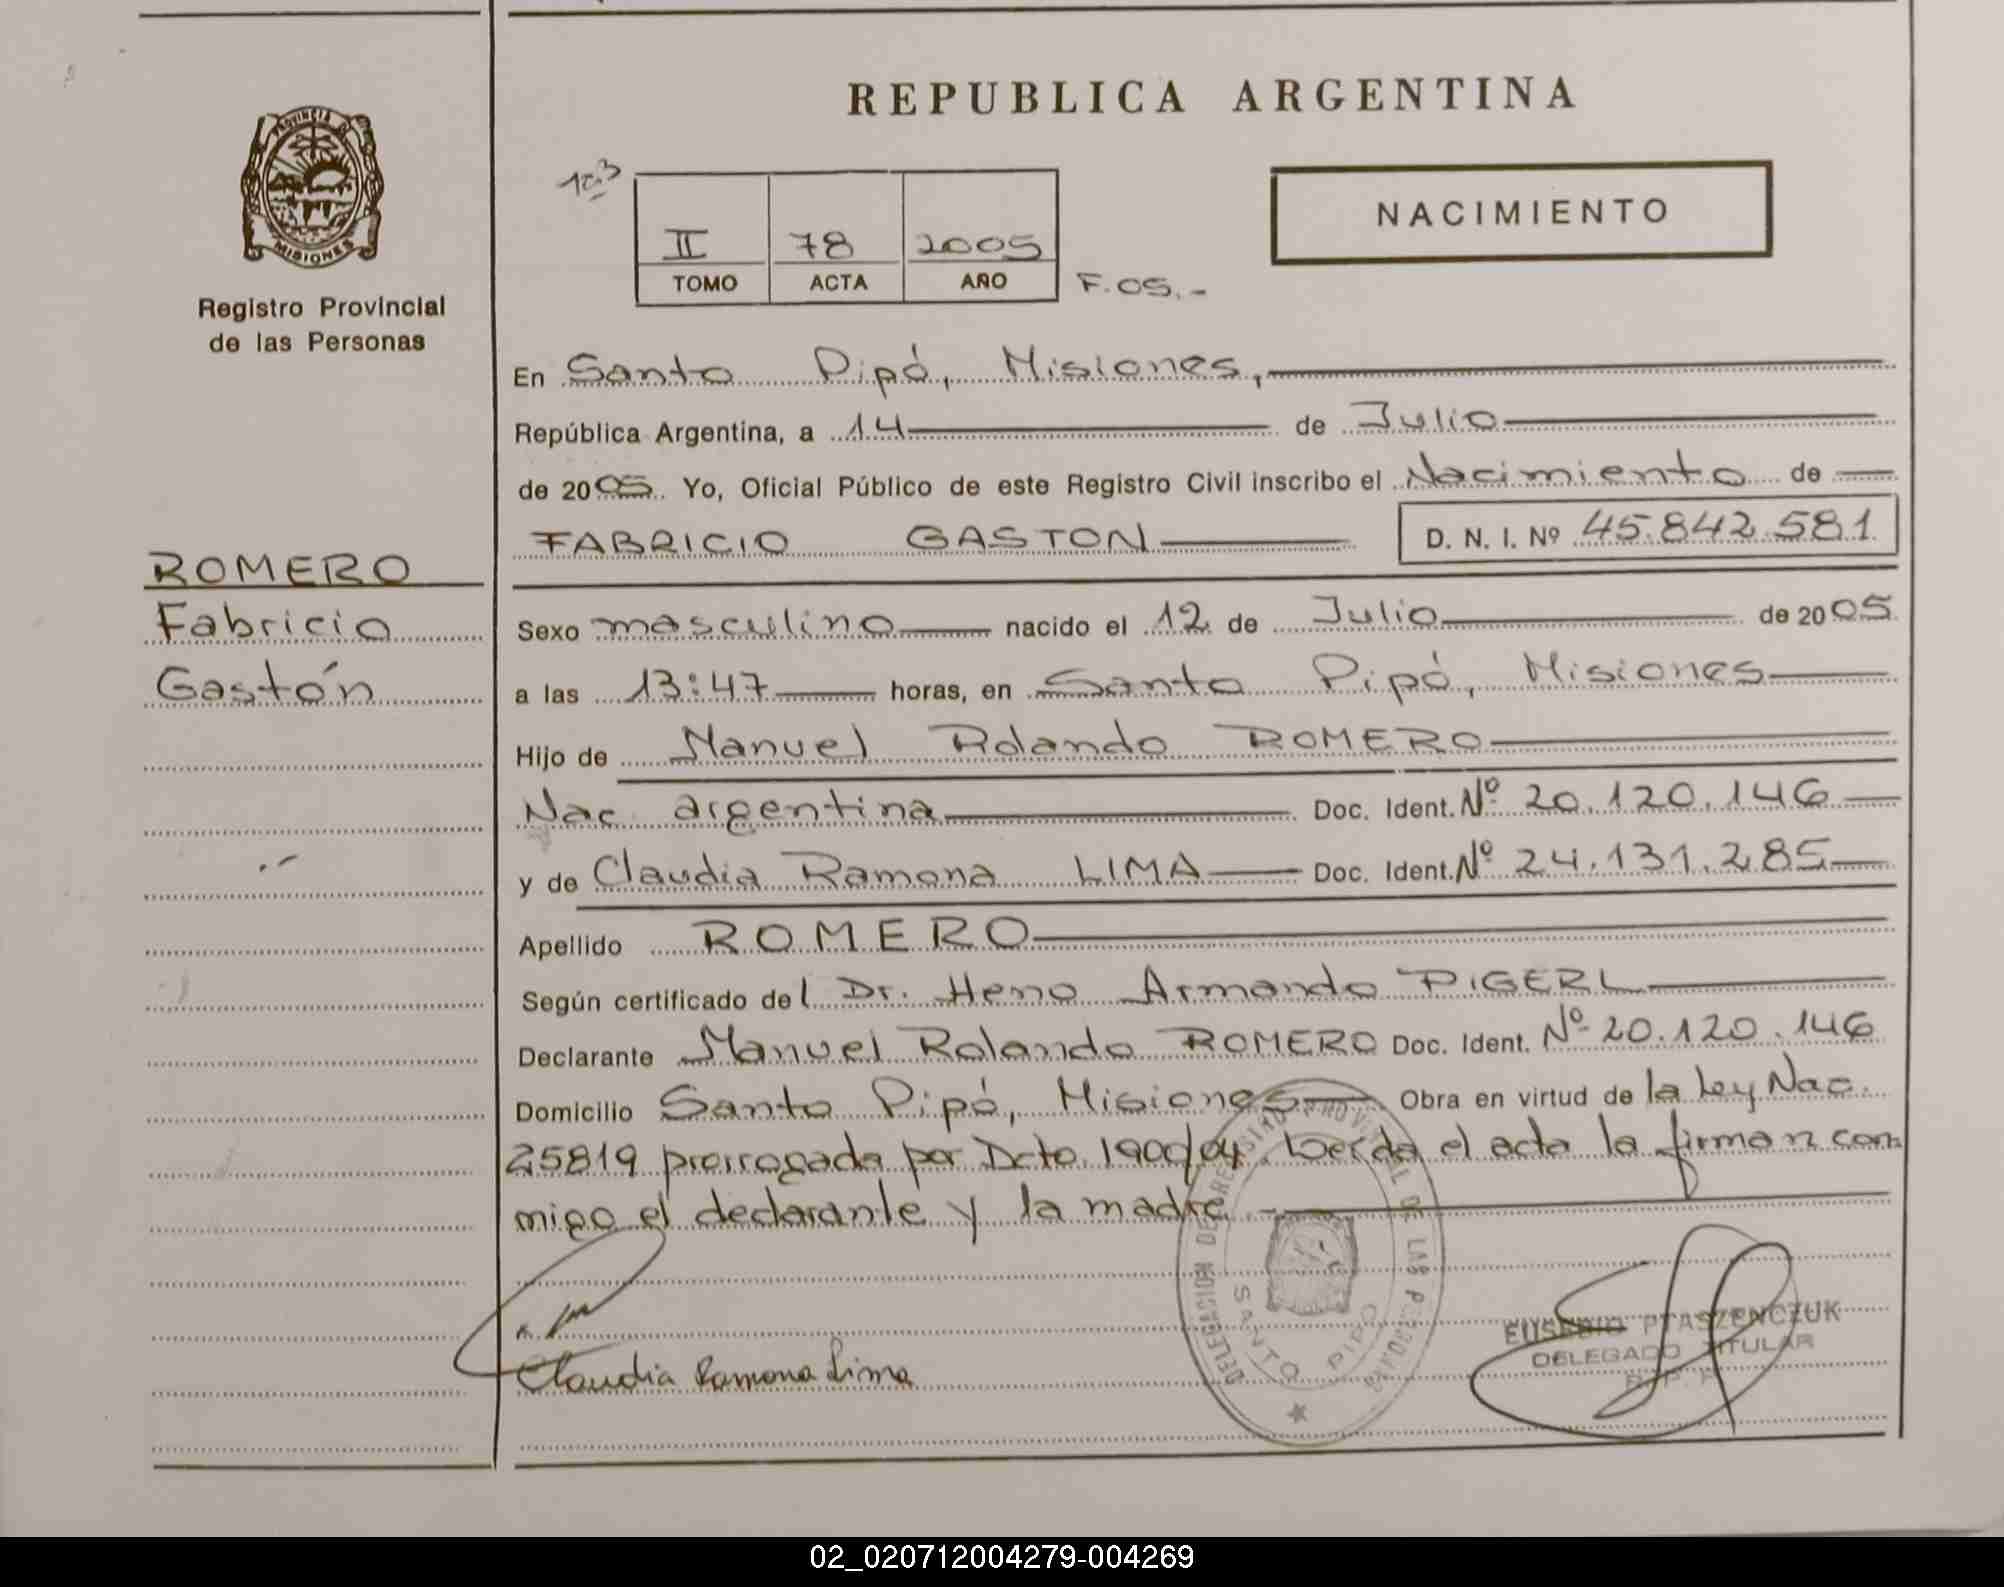 REPUBLICA ARGENTINA
PROVINCIA DE
MISIONES
Registro Provincial
de las Personas
103
II 78 2005
TOMO ACTA AÑO
F.05.-
NACIMIENTO
En Santo Pipó, Misiones,
República Argentina, a 14 de Julio
de 2005 Yo, Oficial Público de este Registro Civil inscribo el Nacimiento de
FABRICIO GASTON D. N. I. Nº 45.842.581
ROMERO
Fabricio
Gastón
Sexo masculino nacido el 12 de Julio de 2005
a las 13:47 horas, en Santo Pipó, Misiones
Hijo de Manuel Rolando ROMERO
Nac. argentina Doc. Ident. Nº 20.120.146
y de Claudia Ramona LIMA Doc. Ident. Nº 24.131.285
Apellido ROMERO
Según certificado del Dr. Heno Armando PIGERL
Declarante Manuel Rolando ROMERO Doc. Ident. Nº 20.120.146
Domicilio Santo Pipó, Misiones Obra en virtud de la Ley Nac.
25819 prorrogada por Dcto. 1900/04. Leída el acta la firman con
migo el declarante y la madre.-
Claudia Ramona Lima
DELEGACION DEL REGISTRO PROVINCIAL DE LAS PERSONAS
SANTO PIPO
EUSEBIO PTASZENCZUK
DELEGADO TITULAR
R. P. P.
02_020712004279-004269